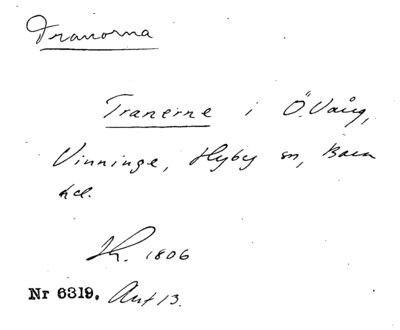 Tranorna
Tranerne i Ö. Vång,
Vinninge, Hyby sn, Bara
hd.
Sk. 1806
Nr 6319. Avf 13.